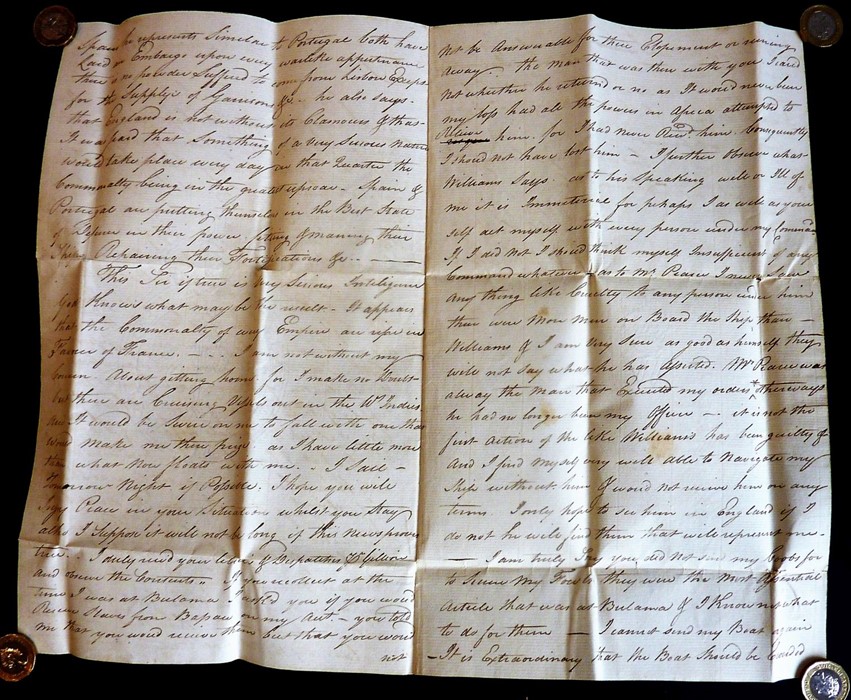 Spain he represents Similar to Portugal both have
Laid an Embargo upon every warlike appearance
there is no powder Suffer'd to come from Lisbon Except
for the Supply's of Garrisons &c. he also says
that England is not without its Clamours & that
It was said that Something of a very Serious Nature
would take place every day in that Quarter the
Commonalty being in the greatest uproar - Spain &
Portugal are putting themselves in the Best State
of Defence in their power fitting & manning their
Ships Repairing their Fortifications &c. —
This Sir if true is very Serious Inteligence
God Knows what may be the result - It appears
that the Commonalty of every Empire are up in
Favor of France. — I am not without my
About getting home for I make no Doubt
but there are Cruising Vessels out in the Wt. Indies
It would be Severe on me to fall with one that
would make me their prize as I have little more
than what Now floats with me. - I Sail -
tomorrow Night if Possible. I hope you will
Enjoy Peace in your Situation whilst you Stay
altho I Suppose it will not be long if this News proves
true. - I duly recd your letter & Dispatches
and observe the Contents - If you recollect at the
time I was at Bulama I asked you if you would
Receive Slaves from Bissau on my Acct. - you told
me that you would receive them but that you would
not
Not be Answerable for their Elopement or runing
away. the man that was then with you I cared
Not whether he returnd or no as It would never been
my loss had all the powers in Africa attempted to
Relieve him. for I had never Recd. him. Consequently
I should not have lost him - I further observe what
Williams Says as to his speaking well or Ill of
me it is Immaterial for perhaps I as well as your
self act myself with every person under my Command
If I did not I should think myself Insufficient of any
Command whatever - as to Mr. Pearce I never Saw
any thing like Cruelty to any person under him
their were More men on Board the Ship than -
Williams & I am Very Sure as good as himself they
will not Say what he has Asserted. Mr. Pearce was
always the man that Executed my orders otherways
he had no longer been my Officer - it is not the
first action of the like Williams has been guilty of
And I find myself very well able to Navigate my
Ship without him & would not receive him on any
terms. I only hope to see him in England if I
do not he will find them that will represent me
— I am truly Sorry you did not send my Coobs for
to Secure My Fowls they were the most Essential
Article that was at Bulama & I Know not what
to do for them — I cannot send my Boat again
- It is Extraordinary that the Boat should be loaded